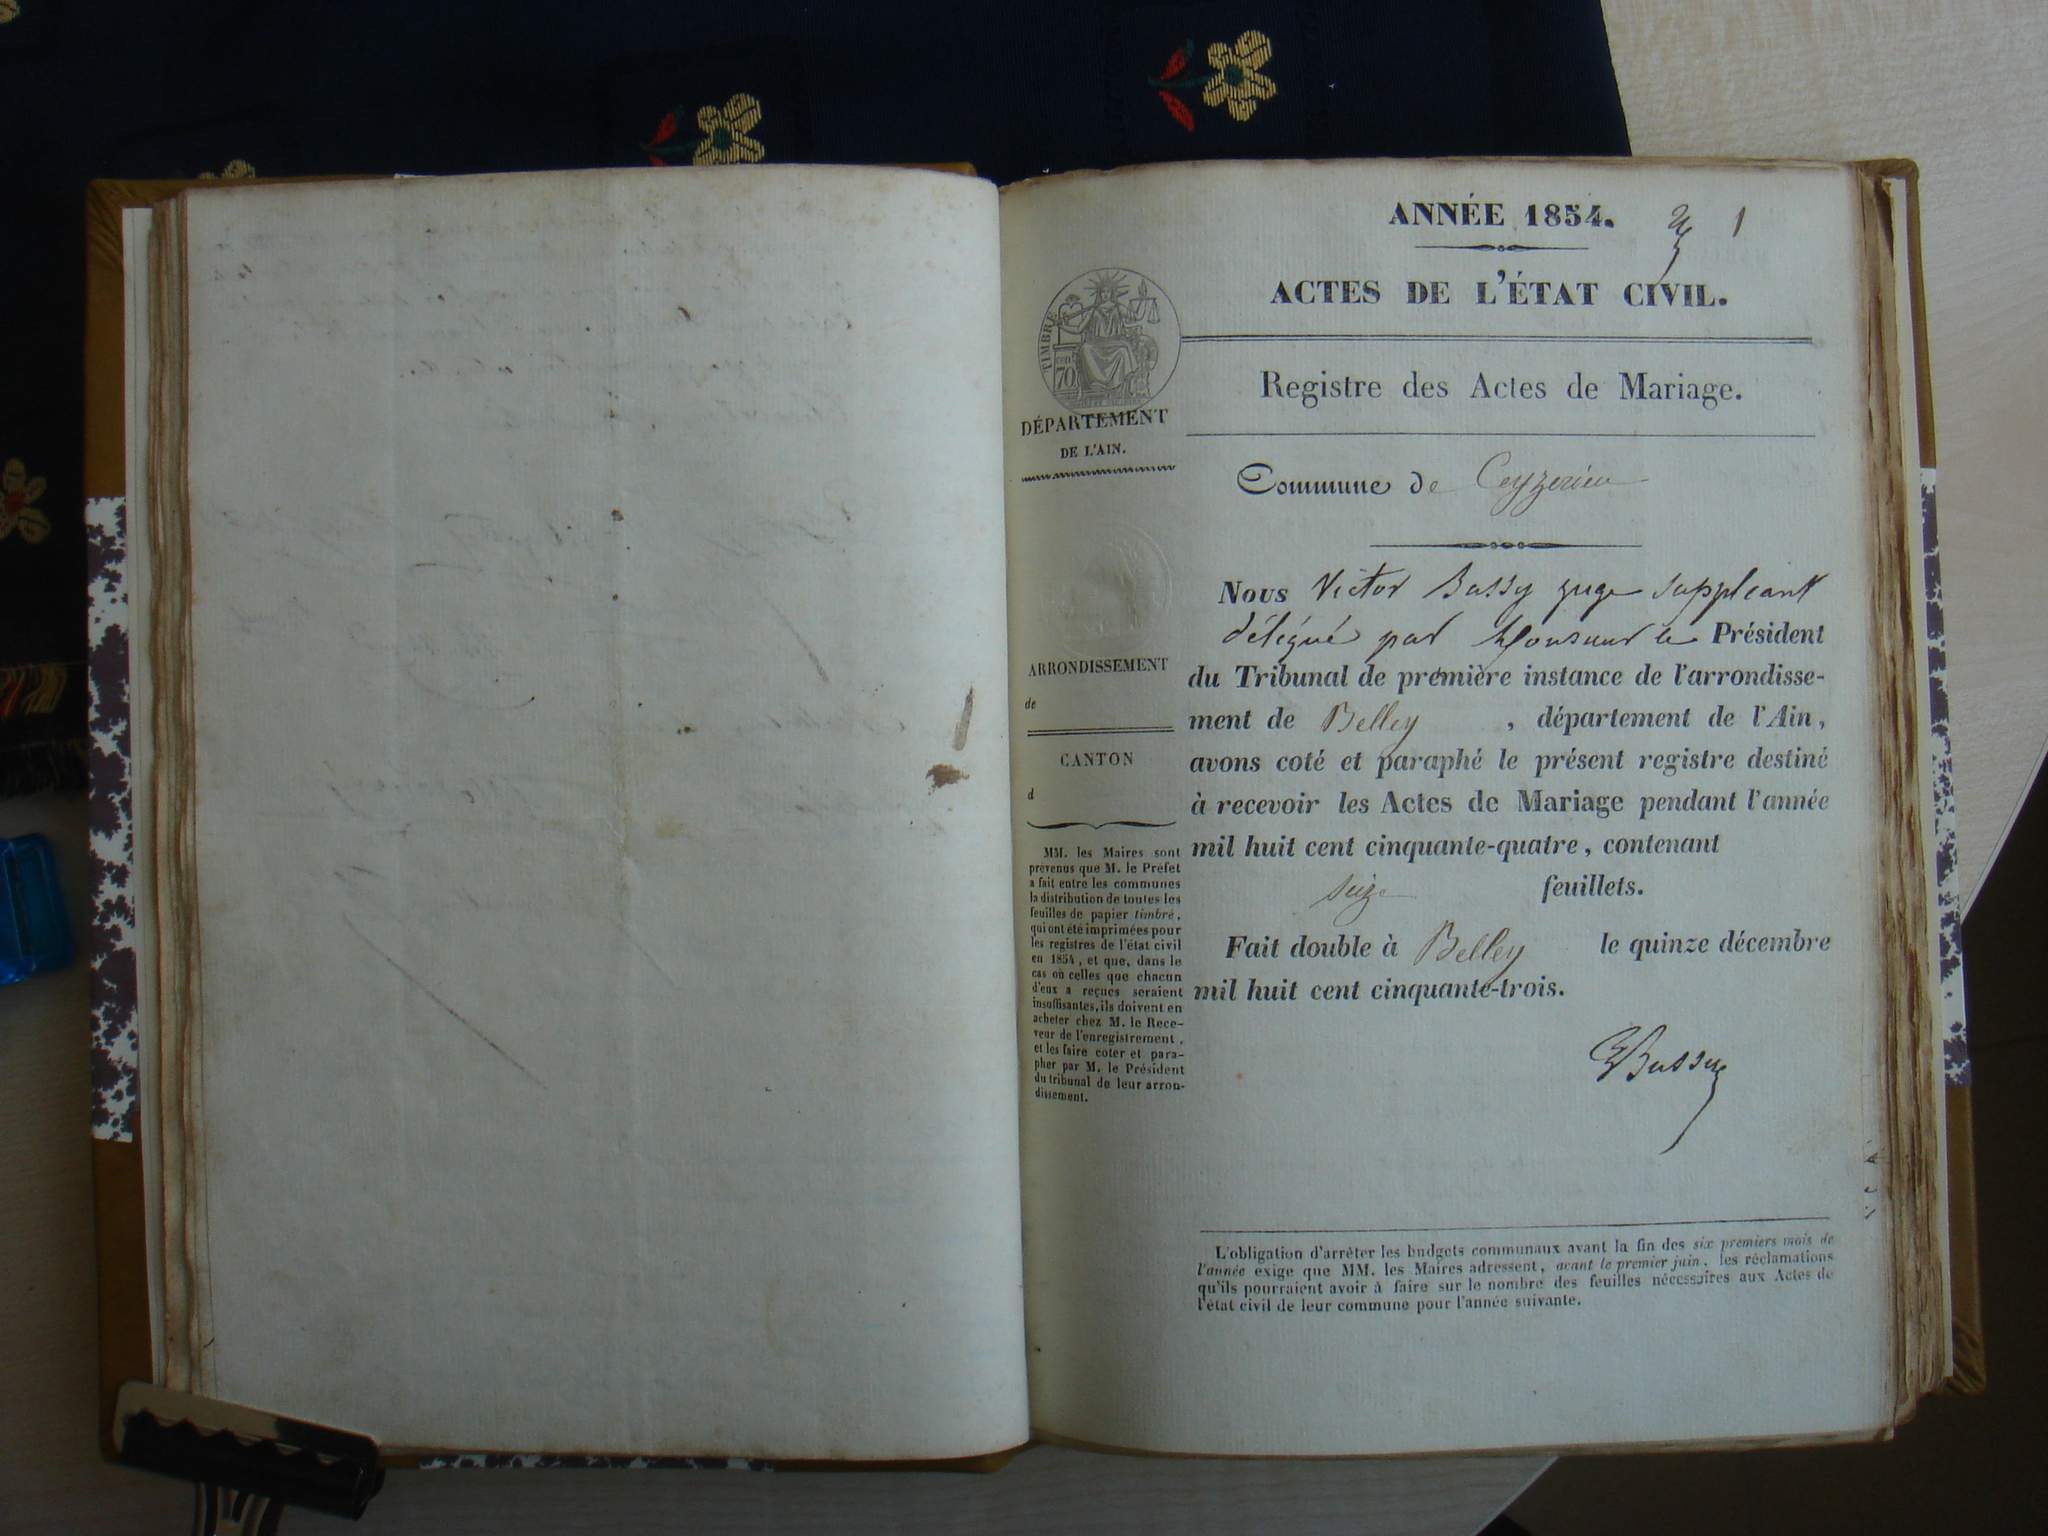 ANNÉE 1854.
1
ACTES DE L'ÉTAT CIVIL.
TIMBRE
cent
70
DÉPARTEMENT
DE L'AIN.
Registre des Actes de Mariage.
Commune de Ceyzerieu
ARRONDISSEMENT
de
CANTON
d
MM. les Maires sont
prévenus que M. le Préfet
a fait entre les communes
la distribution de toutes les
feuilles de papier timbré,
qui ont été imprimées pour
les registres de l'état civil
en 1854, et que, dans le
cas où celles que chacun
d'eux a reçues seraient
insuffisantes, ils doivent en
acheter chez M. le Rece-
veur de l'enregistrement,
et les faire coter et para-
pher par M. le Président
du tribunal de leur arron-
dissement.
Nous Victor Bussy juge suppleant
délégué par Monsieur le Président
du Tribunal de première instance de l'arrondisse-
ment de Belley , département de l'Ain,
avons coté et paraphé le présent registre destiné
à recevoir les Actes de Mariage pendant l'année
mil huit cent cinquante-quatre, contenant
seize feuillets.
Fait double à Belley le quinze décembre
mil huit cent cinquante-trois.
Bussy
L'obligation d'arrêter les budgets communaux avant la fin des six premiers mois de
l'année exige que MM. les Maires adressent, avant le premier juin, les réclamations
qu'ils pourraient avoir à faire sur le nombre des feuilles nécessaires aux Actes de
l'état civil de leur commune pour l'année suivante.